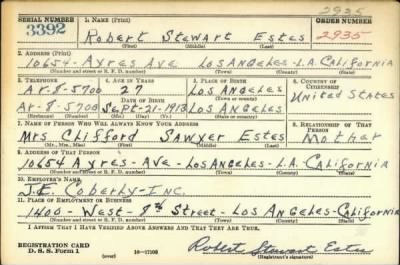 2935
SERIAL NUMBER 1. NAME (Print) ORDER NUMBER
3392 Robert Stewart Estes 2935
(First) (Middle) (Last)
2. ADDRESS (Print)
10654 - Ayres Ave Los Angeles - L.A. California
(Number and street or R. F. D. number) (Town) (County) (State)
3. TELEPHONE 4. AGE IN YEARS 5. PLACE OF BIRTH 6. COUNTRY OF CITIZENSHIP
Ar-8-5700 27 Los Angeles United States
DATE OF BIRTH (Town or county)
Ar-8-5700 Sept-21-1913 Los Angeles
(Exchange) (Number) (Mo.) (Day) (Yr.) (State or country)
7. NAME OF PERSON WHO WILL ALWAYS KNOW YOUR ADDRESS 8. RELATIONSHIP OF THAT PERSON
Mrs Clifford Sawyer Estes Mother
(Mr., Mrs., Miss) (First) (Middle) (Last)
9. ADDRESS OF THAT PERSON
10654 Ayres - Ave - Los Angeles - L.A. California
(Number and street or R. F. D. number) (Town) (County) (State)
10. EMPLOYER'S NAME
J.E. Coberly - Inc.
11. PLACE OF EMPLOYMENT OR BUSINESS
1400 - West - 7th Street - Los Angeles - California
(Number and street or R. F. D. number) (Town) (County) (State)
I AFFIRM THAT I HAVE VERIFIED ABOVE ANSWERS AND THAT THEY ARE TRUE.
REGISTRATION CARD
D. S. S. Form 1 (over) 16-17105 Robert Stewart Estes
(Registrant's signature)